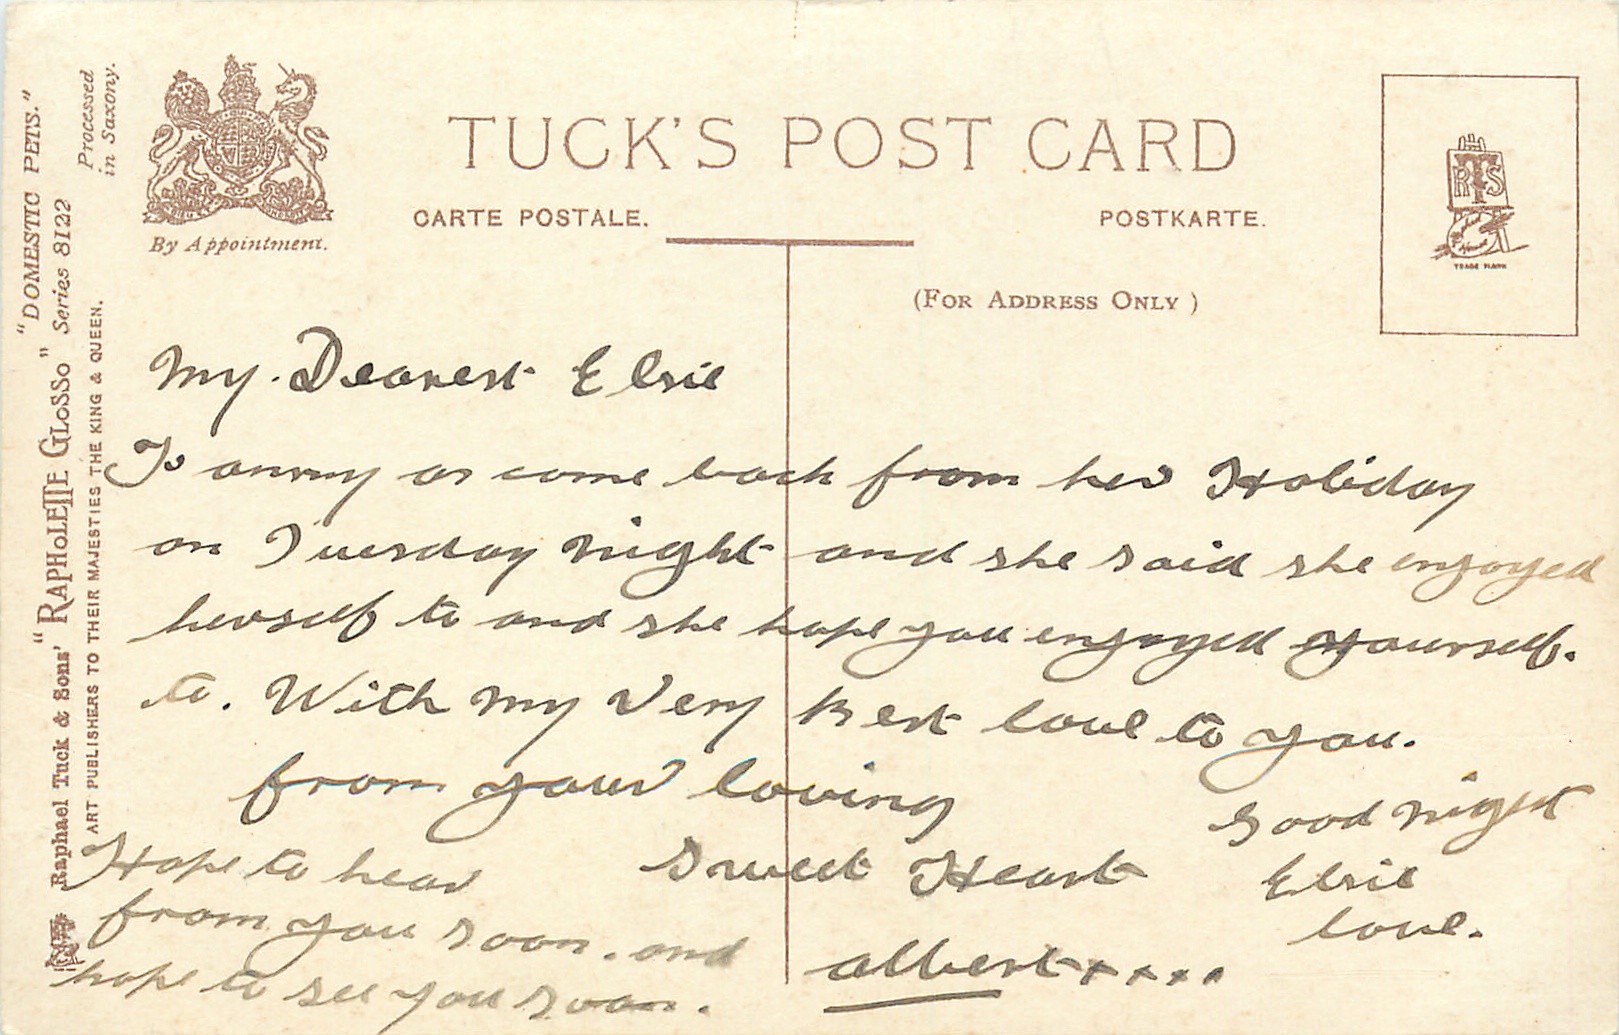 TUCK'S POST CARD
CARTE POSTALE.
POSTKARTE.
By Appointment.
(FOR ADDRESS ONLY)
RTS
TRADE MARK
"DOMESTIC PETS."
Processed
in Saxony.
Raphael Tuck & Sons' "RAPHOLETTE GLOSSO" Series 8122
ART PUBLISHERS TO THEIR MAJESTIES THE KING & QUEEN.
My. Dearest Elsie
as come back from her Holiday
on Tuesday night and she said she enjoyed
herself to and she hope you enjoyed yourself.
to. With my Very Best love to you.
from your loving
Sweet Heart
albert x x x x
Good night
Elsie
love.
Hope to hear
from you soon. and
hope to see you soon.